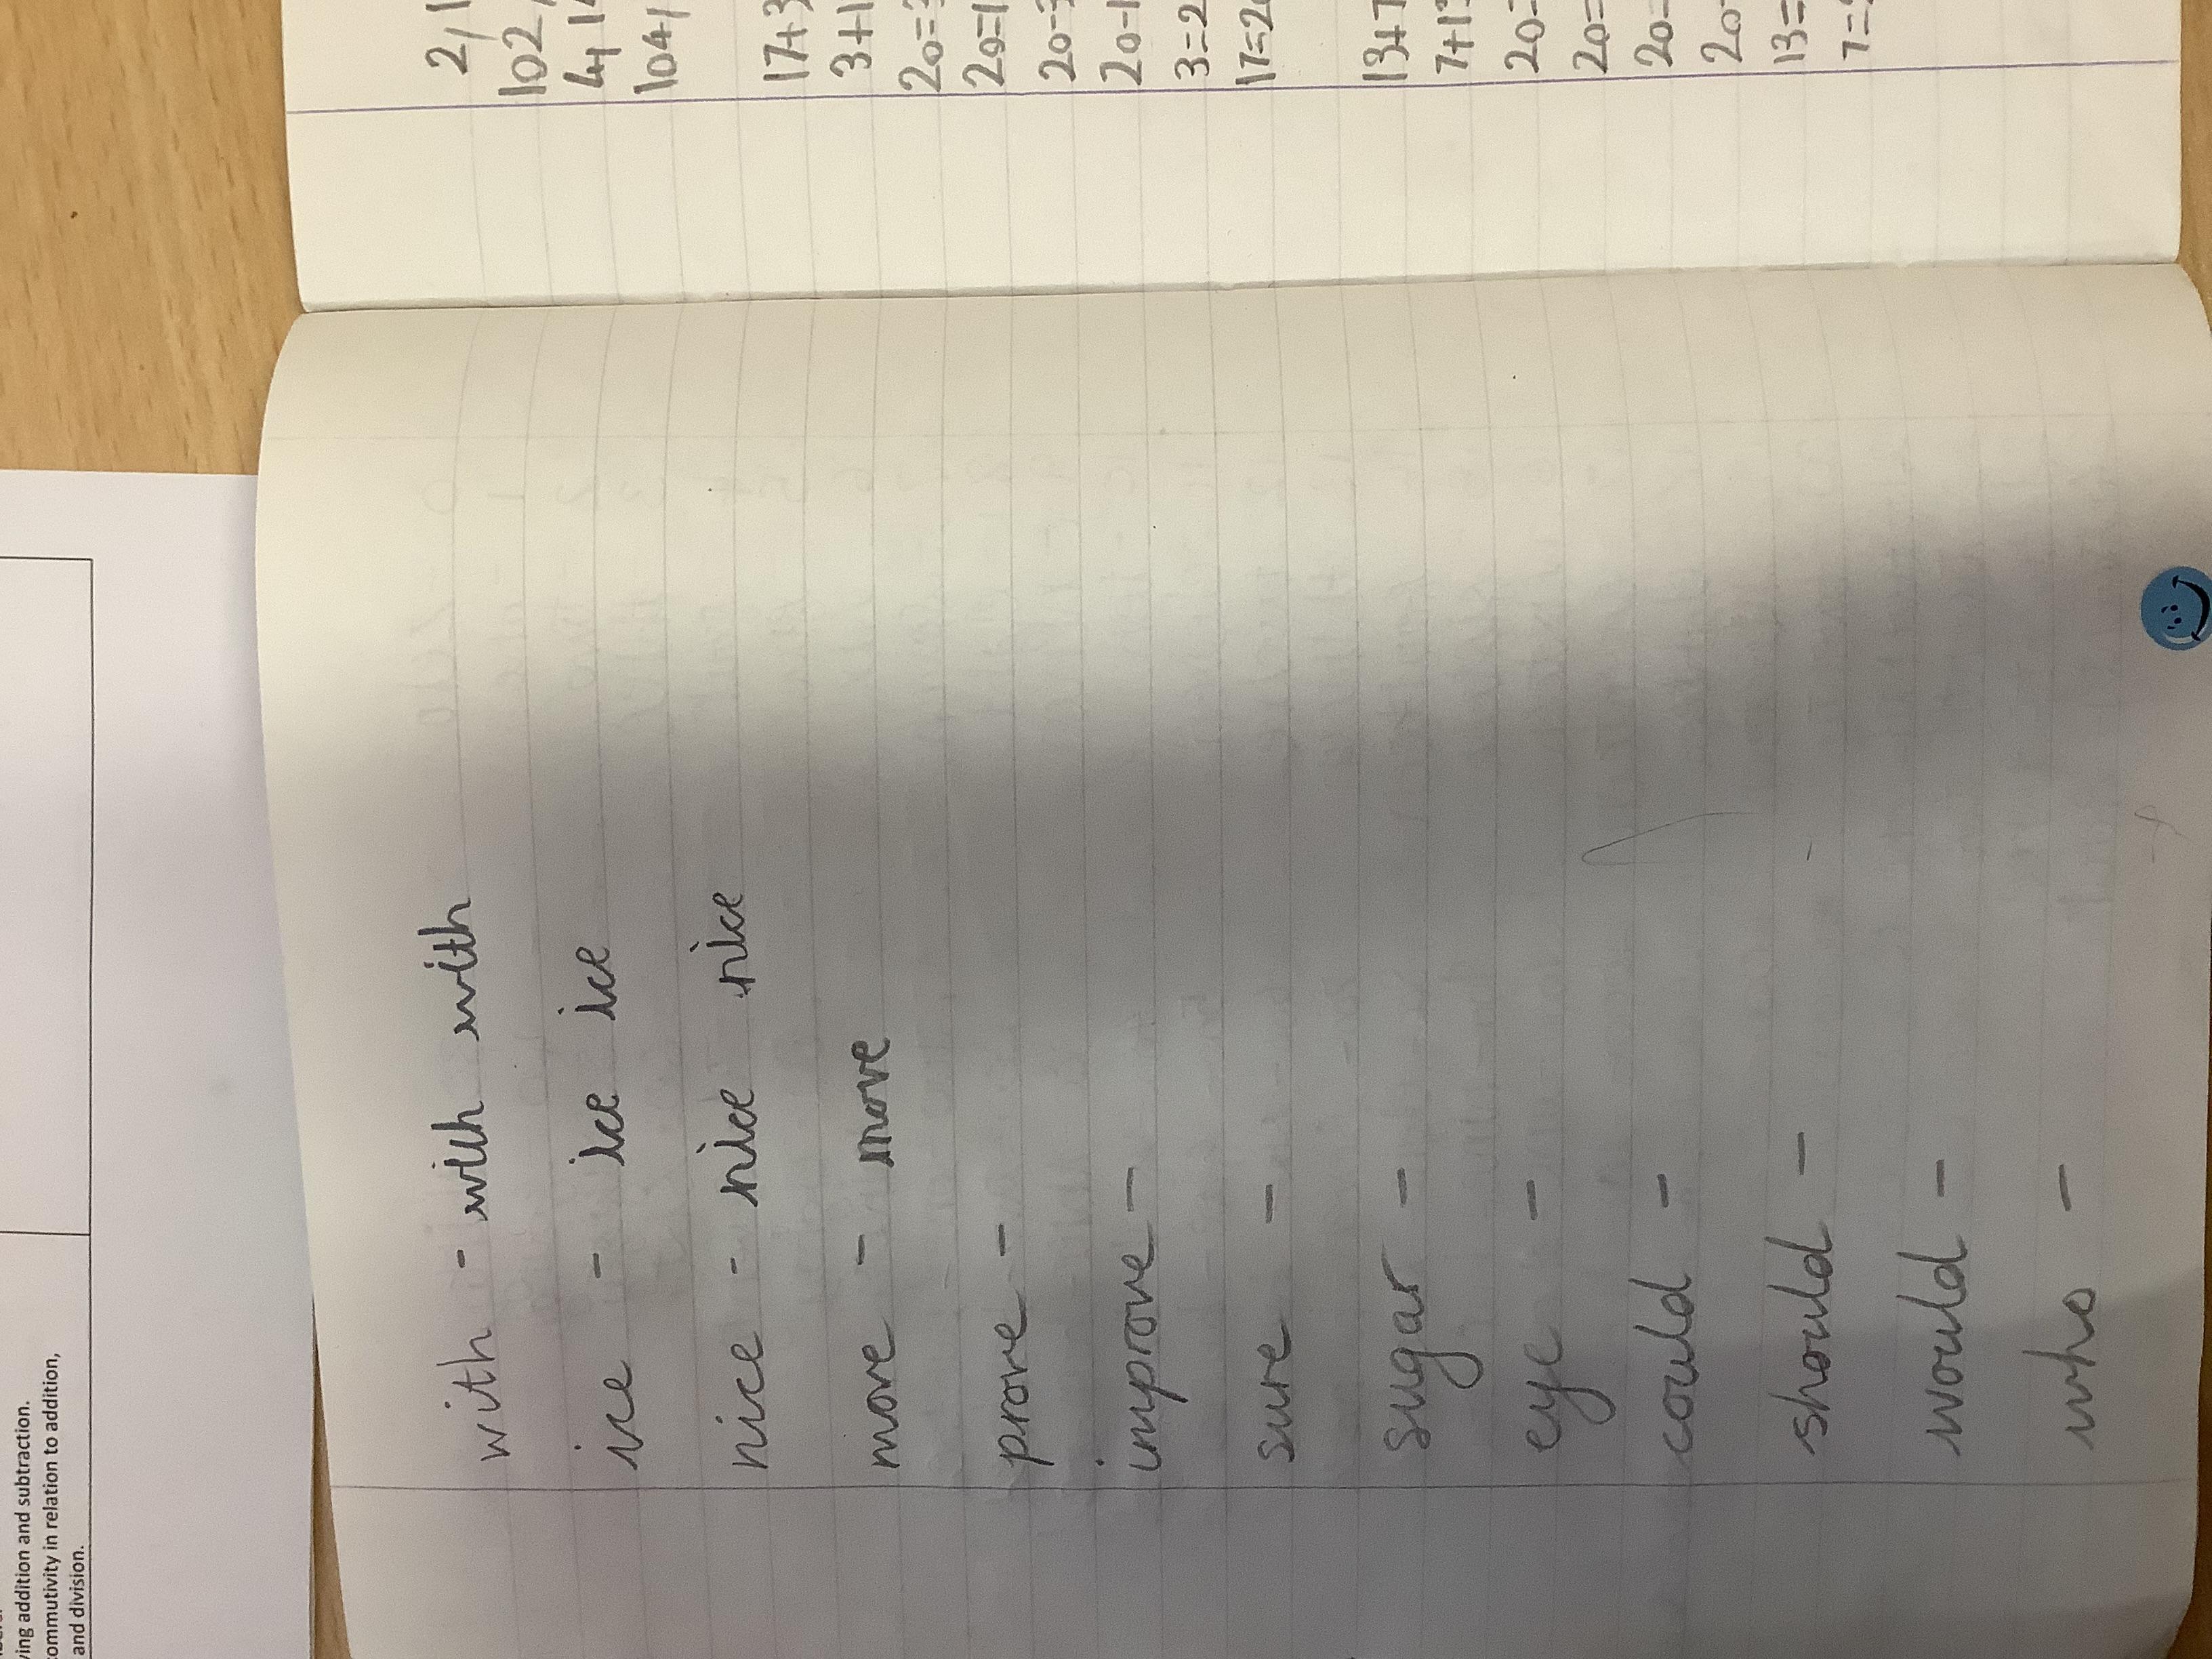 with - with with
ice - ice ice
nice - nice nice
move - move
prove -
improve -
sure -
sugar -
eye -
could -
should -
would -
who -
2/1
102
4/14
104/
17+3
3+1
20=3
20=1
20-3
20-1
3=2
17=20
13+7
7+13
20=
20=
20=
20-
13=
7=2
ving addition and subtraction.
ommutivity in relation to addition,
and division.